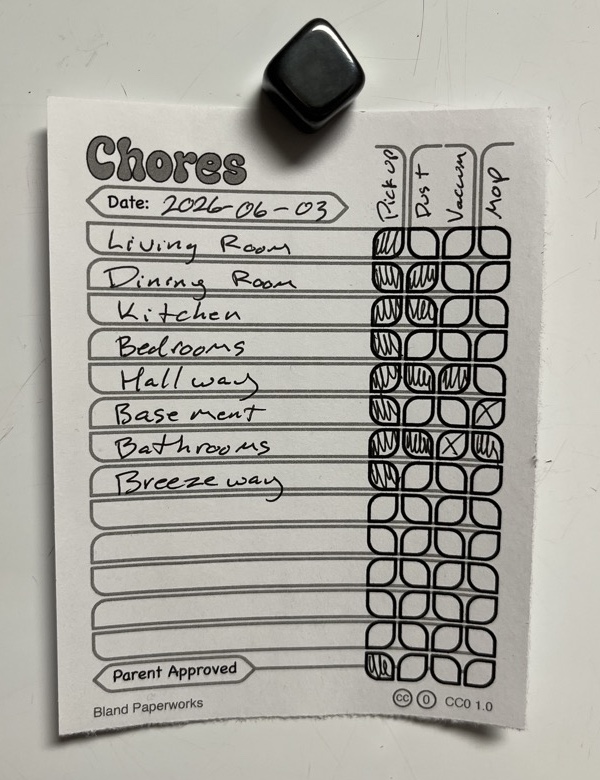 Chores
Pick up
Dust
Vaccum
Mop
Date: 2026-06-03
Living Room
Dining Room
Kitchen
Bedrooms
Hallway
Basement
Bathrooms
Breezeway
Parent Approved
Bland Paperworks
cc 0 CC0 1.0